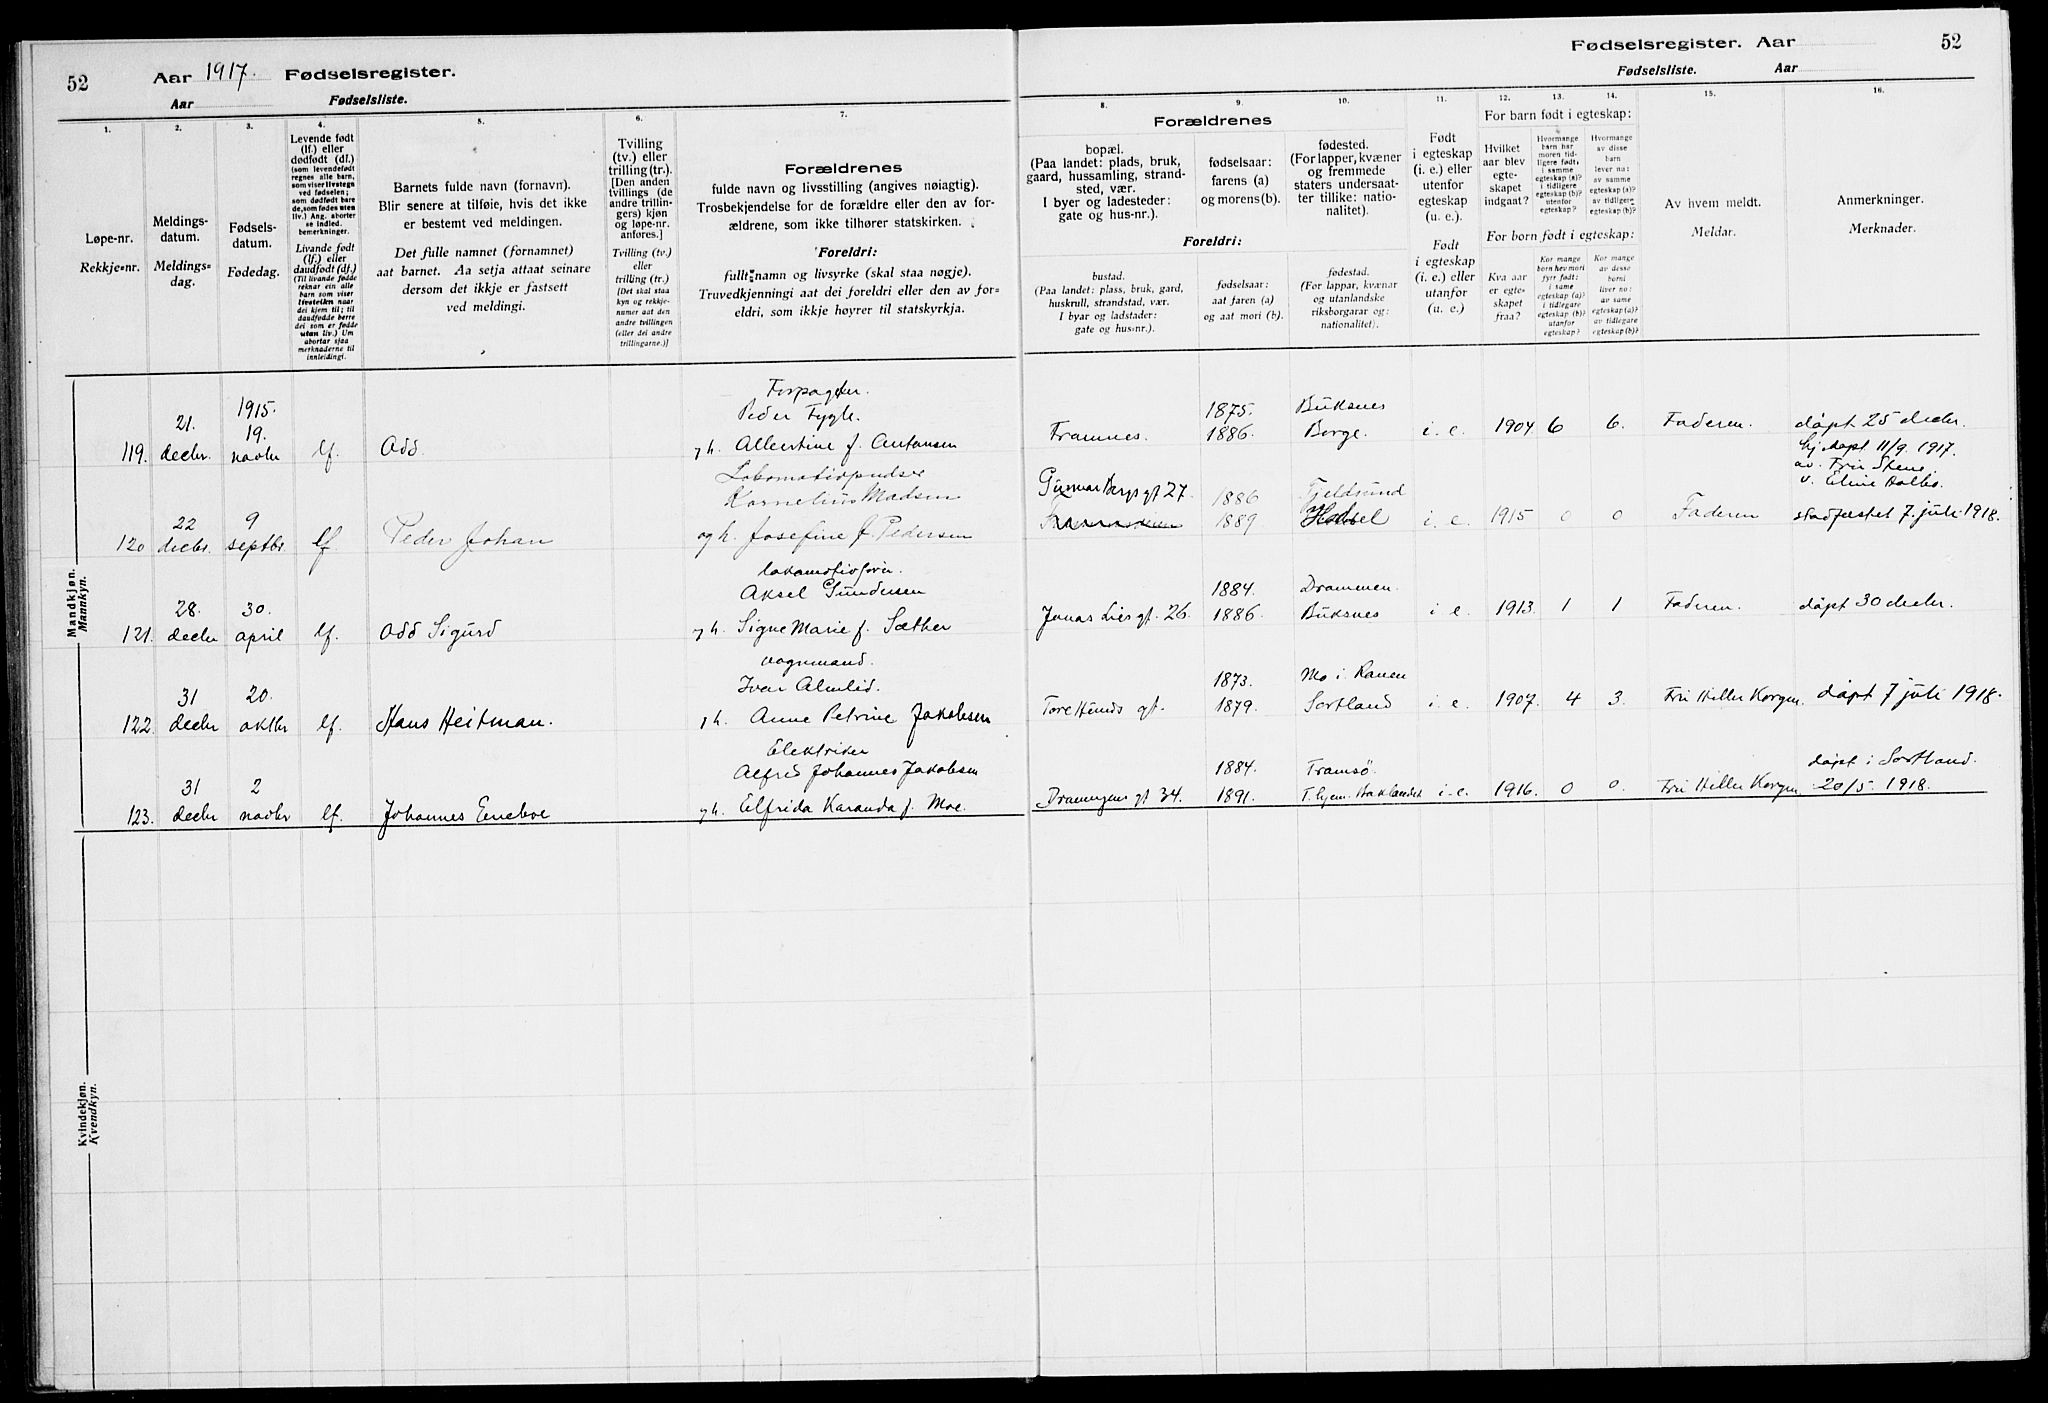 52
Aar 1917. Fødselsregister.
Aar Fødselsliste.
Fødselsregister. Aar
52
Fødselsliste. Aar
1.
Løpe-nr.
Rekkje-nr.
2.
Meldings-
datum.
Meldings-
dag.
3.
Fødsels-
datum.
Fødedag.
4.
Levende født
(lf.) eller
dødfødt (df.)
(som levendefødt
regnes alle barn,
som viser livstegn
ved fødselen;
som dødfødt bare
de, som fødes uten
liv.) Ang. aborter
se indled.
bemerkninger.
Livande født
(lf.) eller
daudfødt (df.)
(Til livande fødde
reknar ein alle
barn som viser
livsteikn naar
dei kjem til; til
daudfødde berre
dei som er fødde
utan liv.) Um
abortar sjaa
merknaderne til
innleidingi.
5.
Barnets fulde navn (fornavn).
Blir senere at tilføie, hvis det ikke
er bestemt ved meldingen.
Det fulle namnet (fornamnet)
aat barnet. Aa setja attaat seinare
dersom det ikkje er fastsett
ved meldingi.
6.
Tvilling
(tv.) eller
trilling (tr.).
[Den anden
tvillings (de
andre trillin-
gers) kjøn
og løpe-nr.
anføres.]
Tvilling (tv.)
eller
trilling (tr.)
[Det skal staa
kyn og rekkje-
numer aat den
andre tvillingen
(eller dei andre
trillingarne.)]
7.
Forældrenes
fulde navn og livsstilling (angives nøiagtig).
Trosbekjendelse for de forældre eller den av for-
ældrene, som ikke tilhører statskirken.
Foreldri:
fullt namn og livsyrke (skal staa nøgje).
Truvedkjenningi aat dei foreldri eller den av for-
eldri, som ikkje høyrer til statskyrkja.
Forældrenes
8.
bopæl.
(Paa landet: plads, bruk,
gaard, hussamling, strand-
sted, vær.
I byer og ladesteder:
gate og hus-nr.).
9.
fødselsaar:
farens (a)
og morens (b).
10.
fødested.
(For lapper, kvæner
og fremmede
staters undersaat-
ter tillike: natio-
nalitet).
Foreldri:
bustad.
(Paa landet: plass, bruk, gard,
huskrull, strandstad, vær.
I byar og ladstader:
gate og hus-nr.).
fødselsaar:
aat faren (a)
og aat mori (b).
fødestad.
(For lappar, kvænar
og utanlandske
riksborgarar og
nationalitet).
11.
Født
i egteskap
(i. e.) eller
utenfor
egteskap
(u. e.).
Født
i egteskap
(i. e.) eller
utanfor
(u. e.)
For barn født i egteskap:
12.
Hvilket
aar blev
egte-
skapet
indgaat?
13.
Hvormange
barn har
moren tid-
ligere født,
i samme
egteskap (a)?
i tidligere
egteskap (b)?
utenfor
egteskap?
14.
Hvormange
av disse
barn
lever nu:
av samme
egteskap (a)?
av tidligere
egteskap (b)?
For born født i egteskap:
Kva aar
er egte-
skapet
fraa?
Kor mange
born hev mori
fyrr født:
i same
egteskap (a)?
i tidlegare
egteskap (b)?
utanfor
egteskap?
Kor mange
av desse
borni
liver no:
av same
egteskap (a)?
av tidlegare
egteskap (b)?
15.
Av hvem meldt.
Meldar.
16.
Anmerkninger.
Merknader.
Mandkjøn.
Mannkyn.
Forpagter.
1915. Peder Fygle. 1875. Buksnes
21. 19.
119. decbr. novbr lf. Odd. g h. Albertine f. Antonsen Framnes. 1886. Borge. i. e. 1904 6 6. Faderen. døpt 25 decbr.
Hj.døpt 11/9. 1917.
Lokomotivpudser
av. Fru Stene.
Kornelius Madsen Gunnar Bergs gt 27. 1886 Fjeldsund
22 9
120 decbr. septbr. lf. Peder Johan og h. Josefine f. Pedersen 1889. Hadsel i. e. 1915 0 0 Faderen stadfæstet 7. juli 1918.
lokomotivfører.
Aksel Gundersen 1884. Drammen.
28. 30.
121. decbr april lf. Odd Sigurd g h. Signe Marie f. Sæther Jonas Lies gt. 26. 1886. Buksnes i e. 1913. 1 1 Faderen. døpt 30 decbr.
vognmand.
Ivar Almlid. 1873. Mo i. Ranen
31 20.
122. decbr oktbr lf. Hans Heitman. g h. Anne Petrine Jakobsen Tore Hunds gt. 1879. Sortland i. e. 1907. 4 3. Fru Hiller Korgen. døpt 7 juli 1918.
Elektriker
Alfred Johannes Jakobsen 1884. Tromsø. døpt i Sortland.
31 2
123. decbr novbr lf. Johannes Eneboe g h. Elfrida Karanda f. Moe. Dronningens gt 34. 1891. T.hjem. Baklandet i. e. 1916. 0 0. Fru Hiller Korgen 20/5. 1918.
Kvindekjøn.
Kvendkyn.